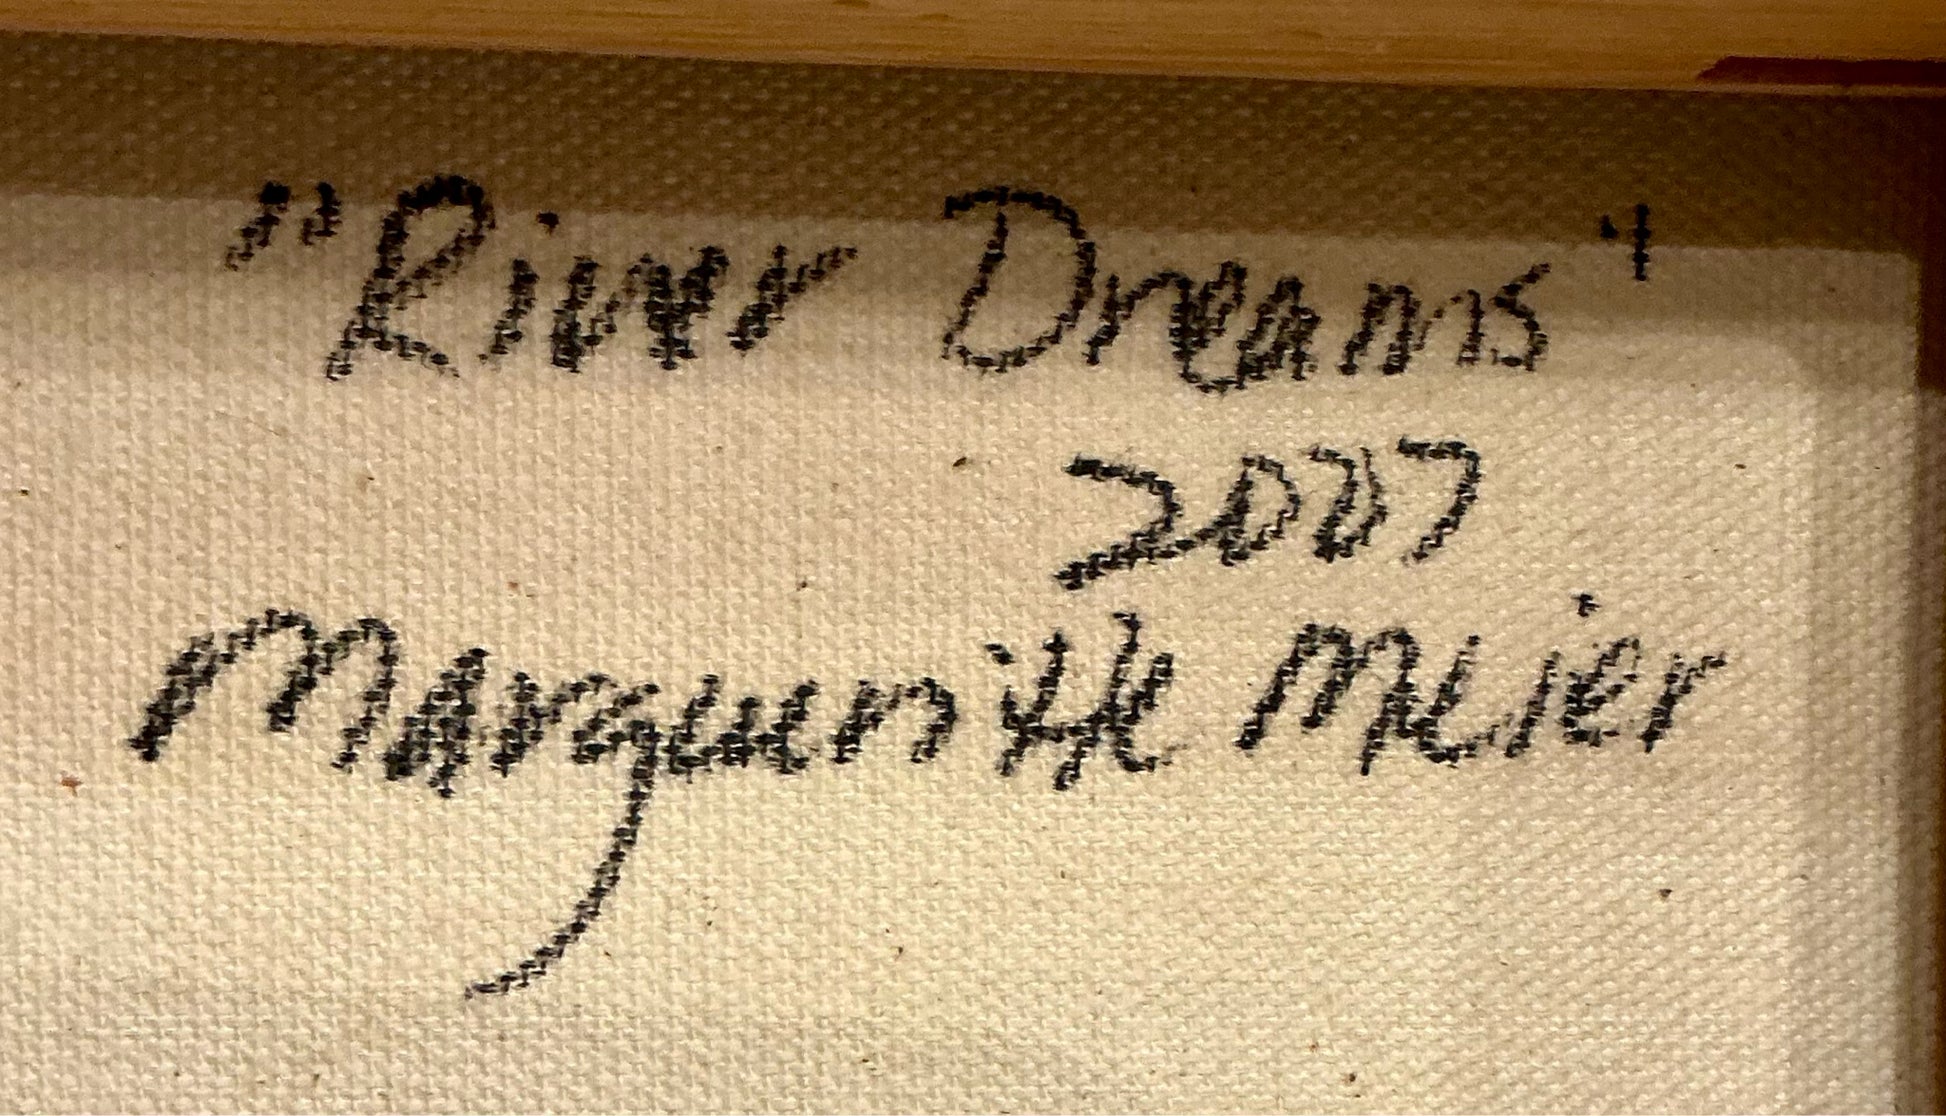 "River Dreams"
2007
Marguerite Meier